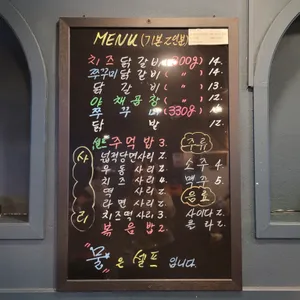 MENU (기본 2인분)
치즈 닭갈비 (300g) 14.
쭈꾸미 닭갈비 ( " ) 14.
닭갈비 ( " ) 13.
야채곱창 12.
쭈꾸미 (330g)
닭발 12.
주먹밥 3.
사리
넙적당면사리 2.
우동사리 2.
치즈사리 4.
떡사리 2.
라면사리 2.
치즈떡사리 3.
볶음밥 2.
주류
소주 4.
맥주 5.
음료
사이다 2.
콜라 2.
"물"은 셀프 입니다.